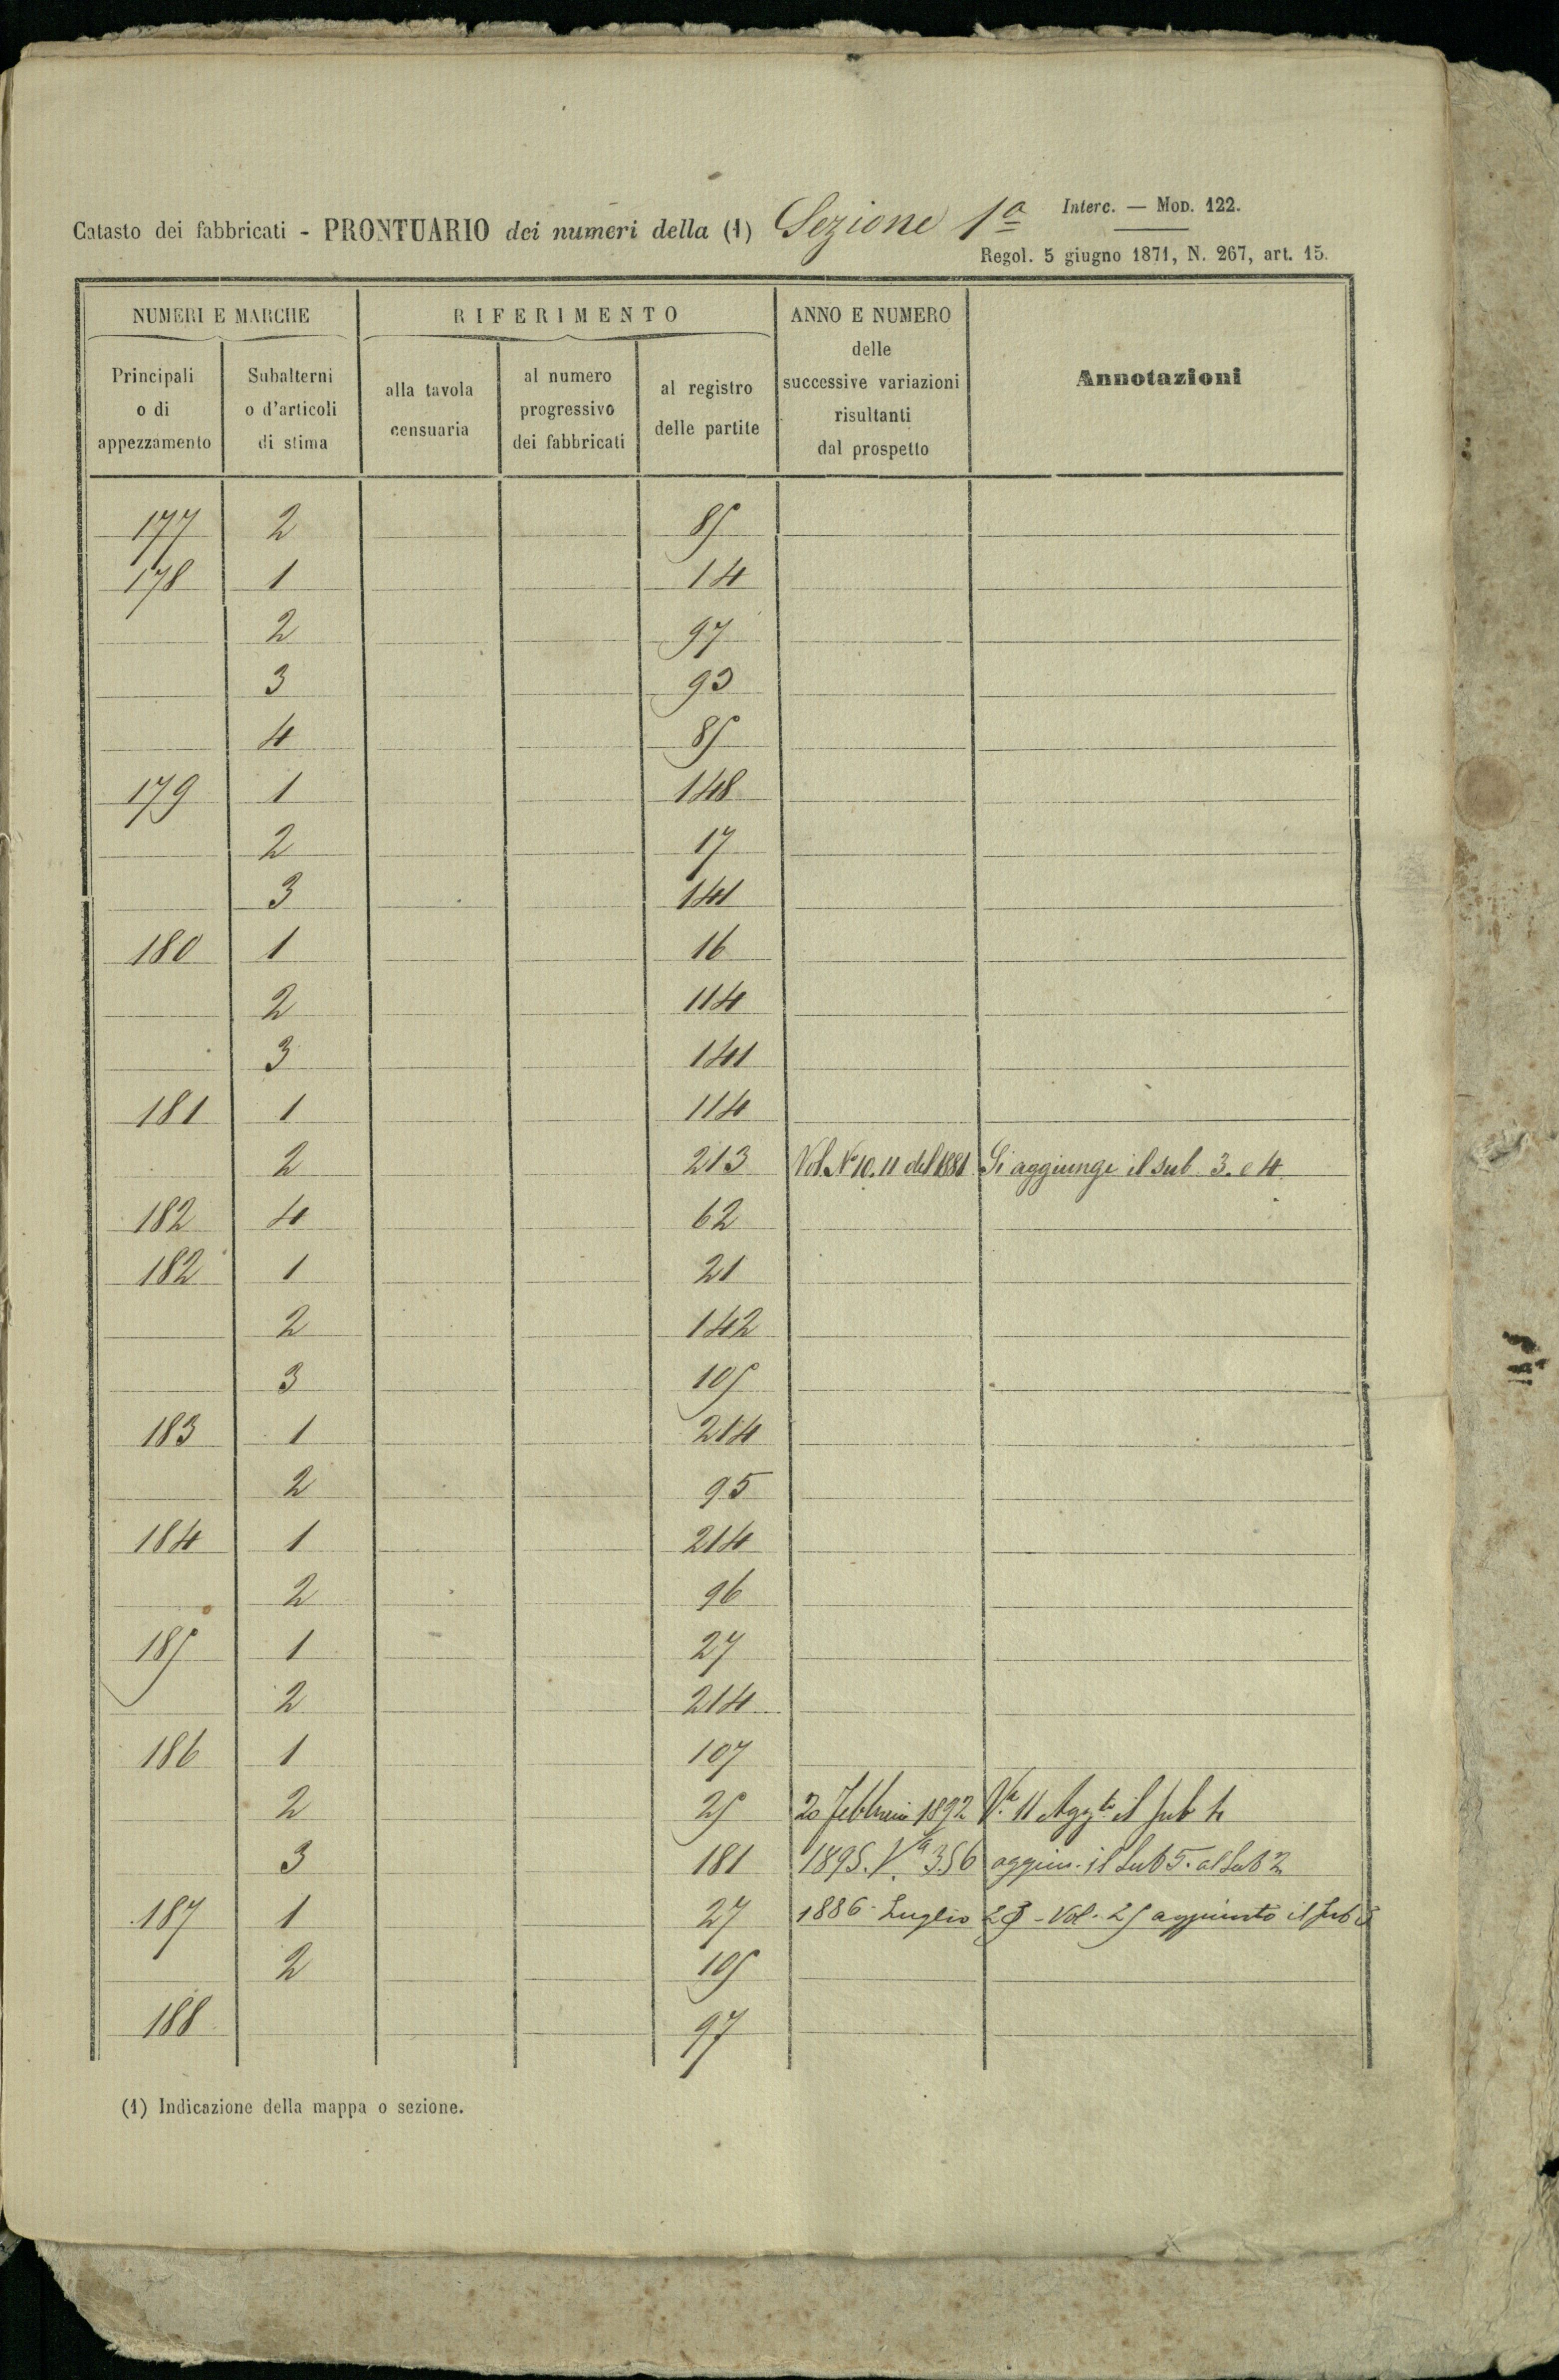 Catasto dei fabbricati - PRONTUARIO dei numeri della (1) Sezione 1ª
Interc. — Mod. 122.
Regol. 5 giugno 1871, N. 267, art. 15.
NUMERI E MARCHE
RIFERIMENTO
ANNO E NUMERO delle successive variazioni risultanti dal prospetto
Annotazioni
Principali o di appezzamento
Subalterni o d'articoli di stima
alla tavola censuaria
al numero progressivo dei fabbricati
al registro delle partite
177 2 85
178 1 14
2 97
3 93
4 85
179 1 148
2 17
3 141
180 1 16
2 114
3 141
181 1 114
2 213 Vol. Nº 10. 11 del 1881 Si aggiunge il sub 3. e 4
182 4 62
182 1 21
2 142
3 105
183 1 214
2 95
184 1 214
2 96
185 1 27
2 214
186 1 107
2 25 20 Febbraio 1892 Vª 11 Aggto il sub 4
3 181 1895. Vª 356 aggiun. il Sub 5. al Sub 2
187 1 27 1886 Luglio - Vol. 25 aggiunto il Sub 3
2 105
188 97
(1) Indicazione della mappa o sezione.